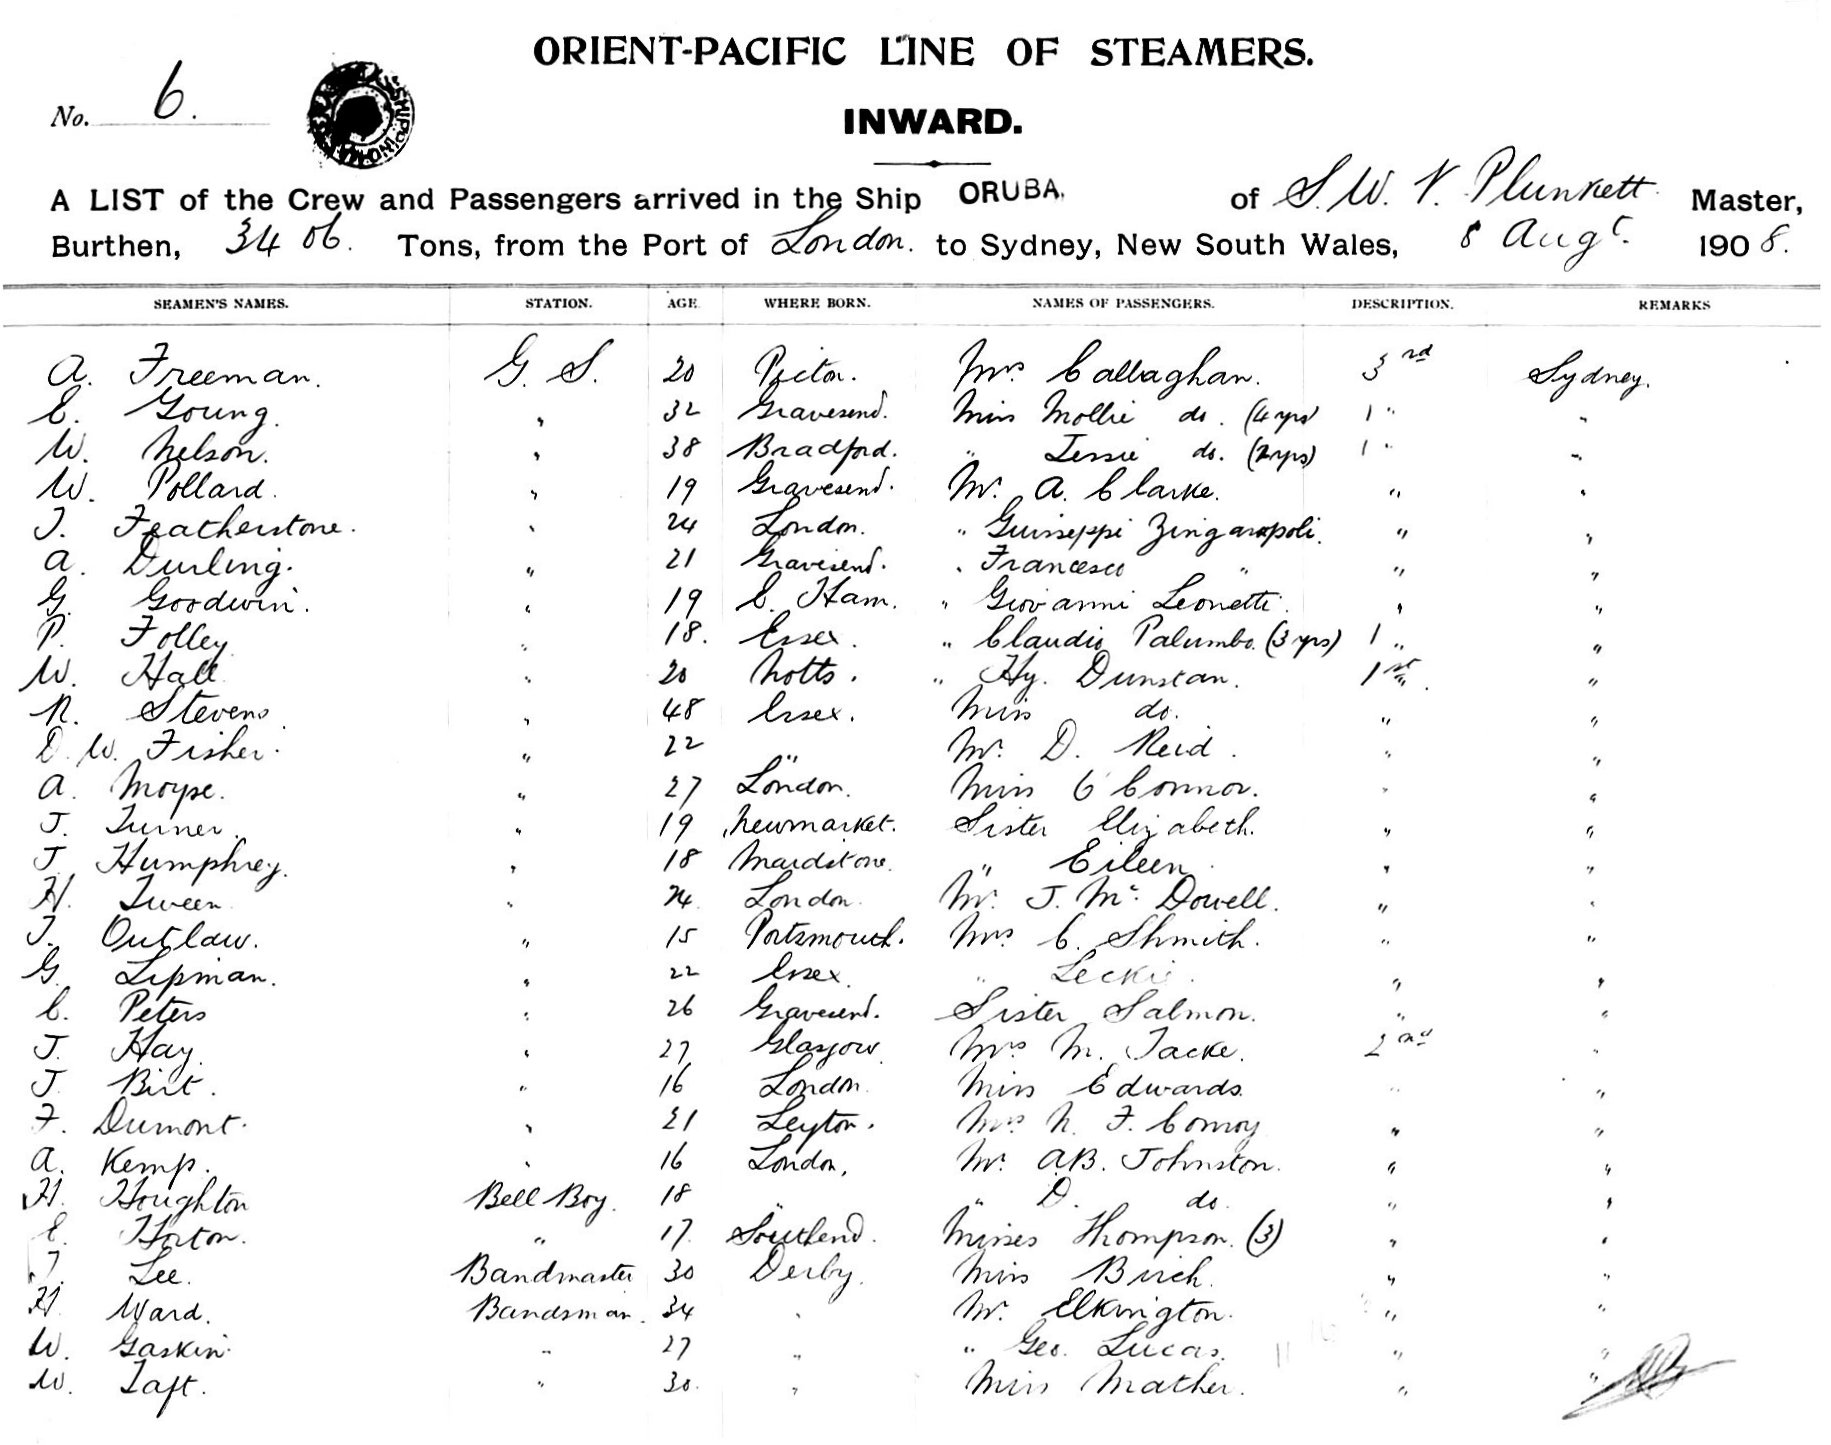 ORIENT-PACIFIC LINE OF STEAMERS.
No. 6.
INWARD.
A LIST of the Crew and Passengers arrived in the Ship ORUBA. of S. W. V. Plunkett Master,
Burthen, 34 06. Tons, from the Port of London. to Sydney, New South Wales, 8 Augt. 1908.
SEAMEN'S NAMES. STATION. AGE WHERE BORN. NAMES OF PASSENGERS. DESCRIPTION. REMARKS
A. Freeman. G. S. 20 Picton. Mrs Callaghan. 3rd Sydney.
E. Goung. " 32 Gravesend. Miss Mollie do. (4 yrs) 1 " "
W. Nelson. " 38 Bradford. " Jessie do. (2 yrs) 1 " "
W. Pollard. " 19 Gravesend. Mr. A. Clarke. " "
J. Featherstone. " 24 London. " Guiseppi Zingaropoli. " "
A. Durling. " 21 Gravesend. " Francesco " " "
G. Goodwin. " 19 E. Ham. " Giovanni Leonetti. " "
P. Folley " 18. Essex. " Claudio Palumbo. (3 yrs) 1 " "
W. Hall " 20 Notts. " Hy. Dunstan. 1st "
R. Stevens " 48 Essex. Miss do. " "
D. W. Fisher. " 22 " Mr. D. Reid. " "
A. Moyse. " 27 London. Miss O'Connor. " "
J. Turner. " 19 Newmarket. Sister Elizabeth. " "
J. Humphrey. " 18 Maidstone. " Eileen. " "
H. Tween. " 24 London. Mr. J. Mc. Dowell. " "
J. Outlaw. " 15 Portsmouth. Mrs C. Shmith. " "
G. Lipman. " 22 Essex " Leckie. " "
C. Peters " 26 Gravesend. Sister Salmon. " "
J. Hay. " 27 Glasgow Mrs M. Tacke. 2nd "
J. Birt. " 16 London. Miss Edwards. " "
F. Dumont. " 21 Leyton. Mrs N. F. Conroy " "
A. Kemp. " 16 London. Mr. A.B. Johnston. " "
H. Houghton Bell Boy. 18 " " D. do. " "
E. Horton. " 17. Southend. Misses Thompson. (3) " "
J. Lee. Bandmaster 30 Derby. Miss Birch. " "
H. Ward. Bandsman. 34 " Mr. Elkington. " "
W. Gaskin. " 27 " " Geo. Lucas. " "
W. Taft. " 30. " Miss Mather. " "